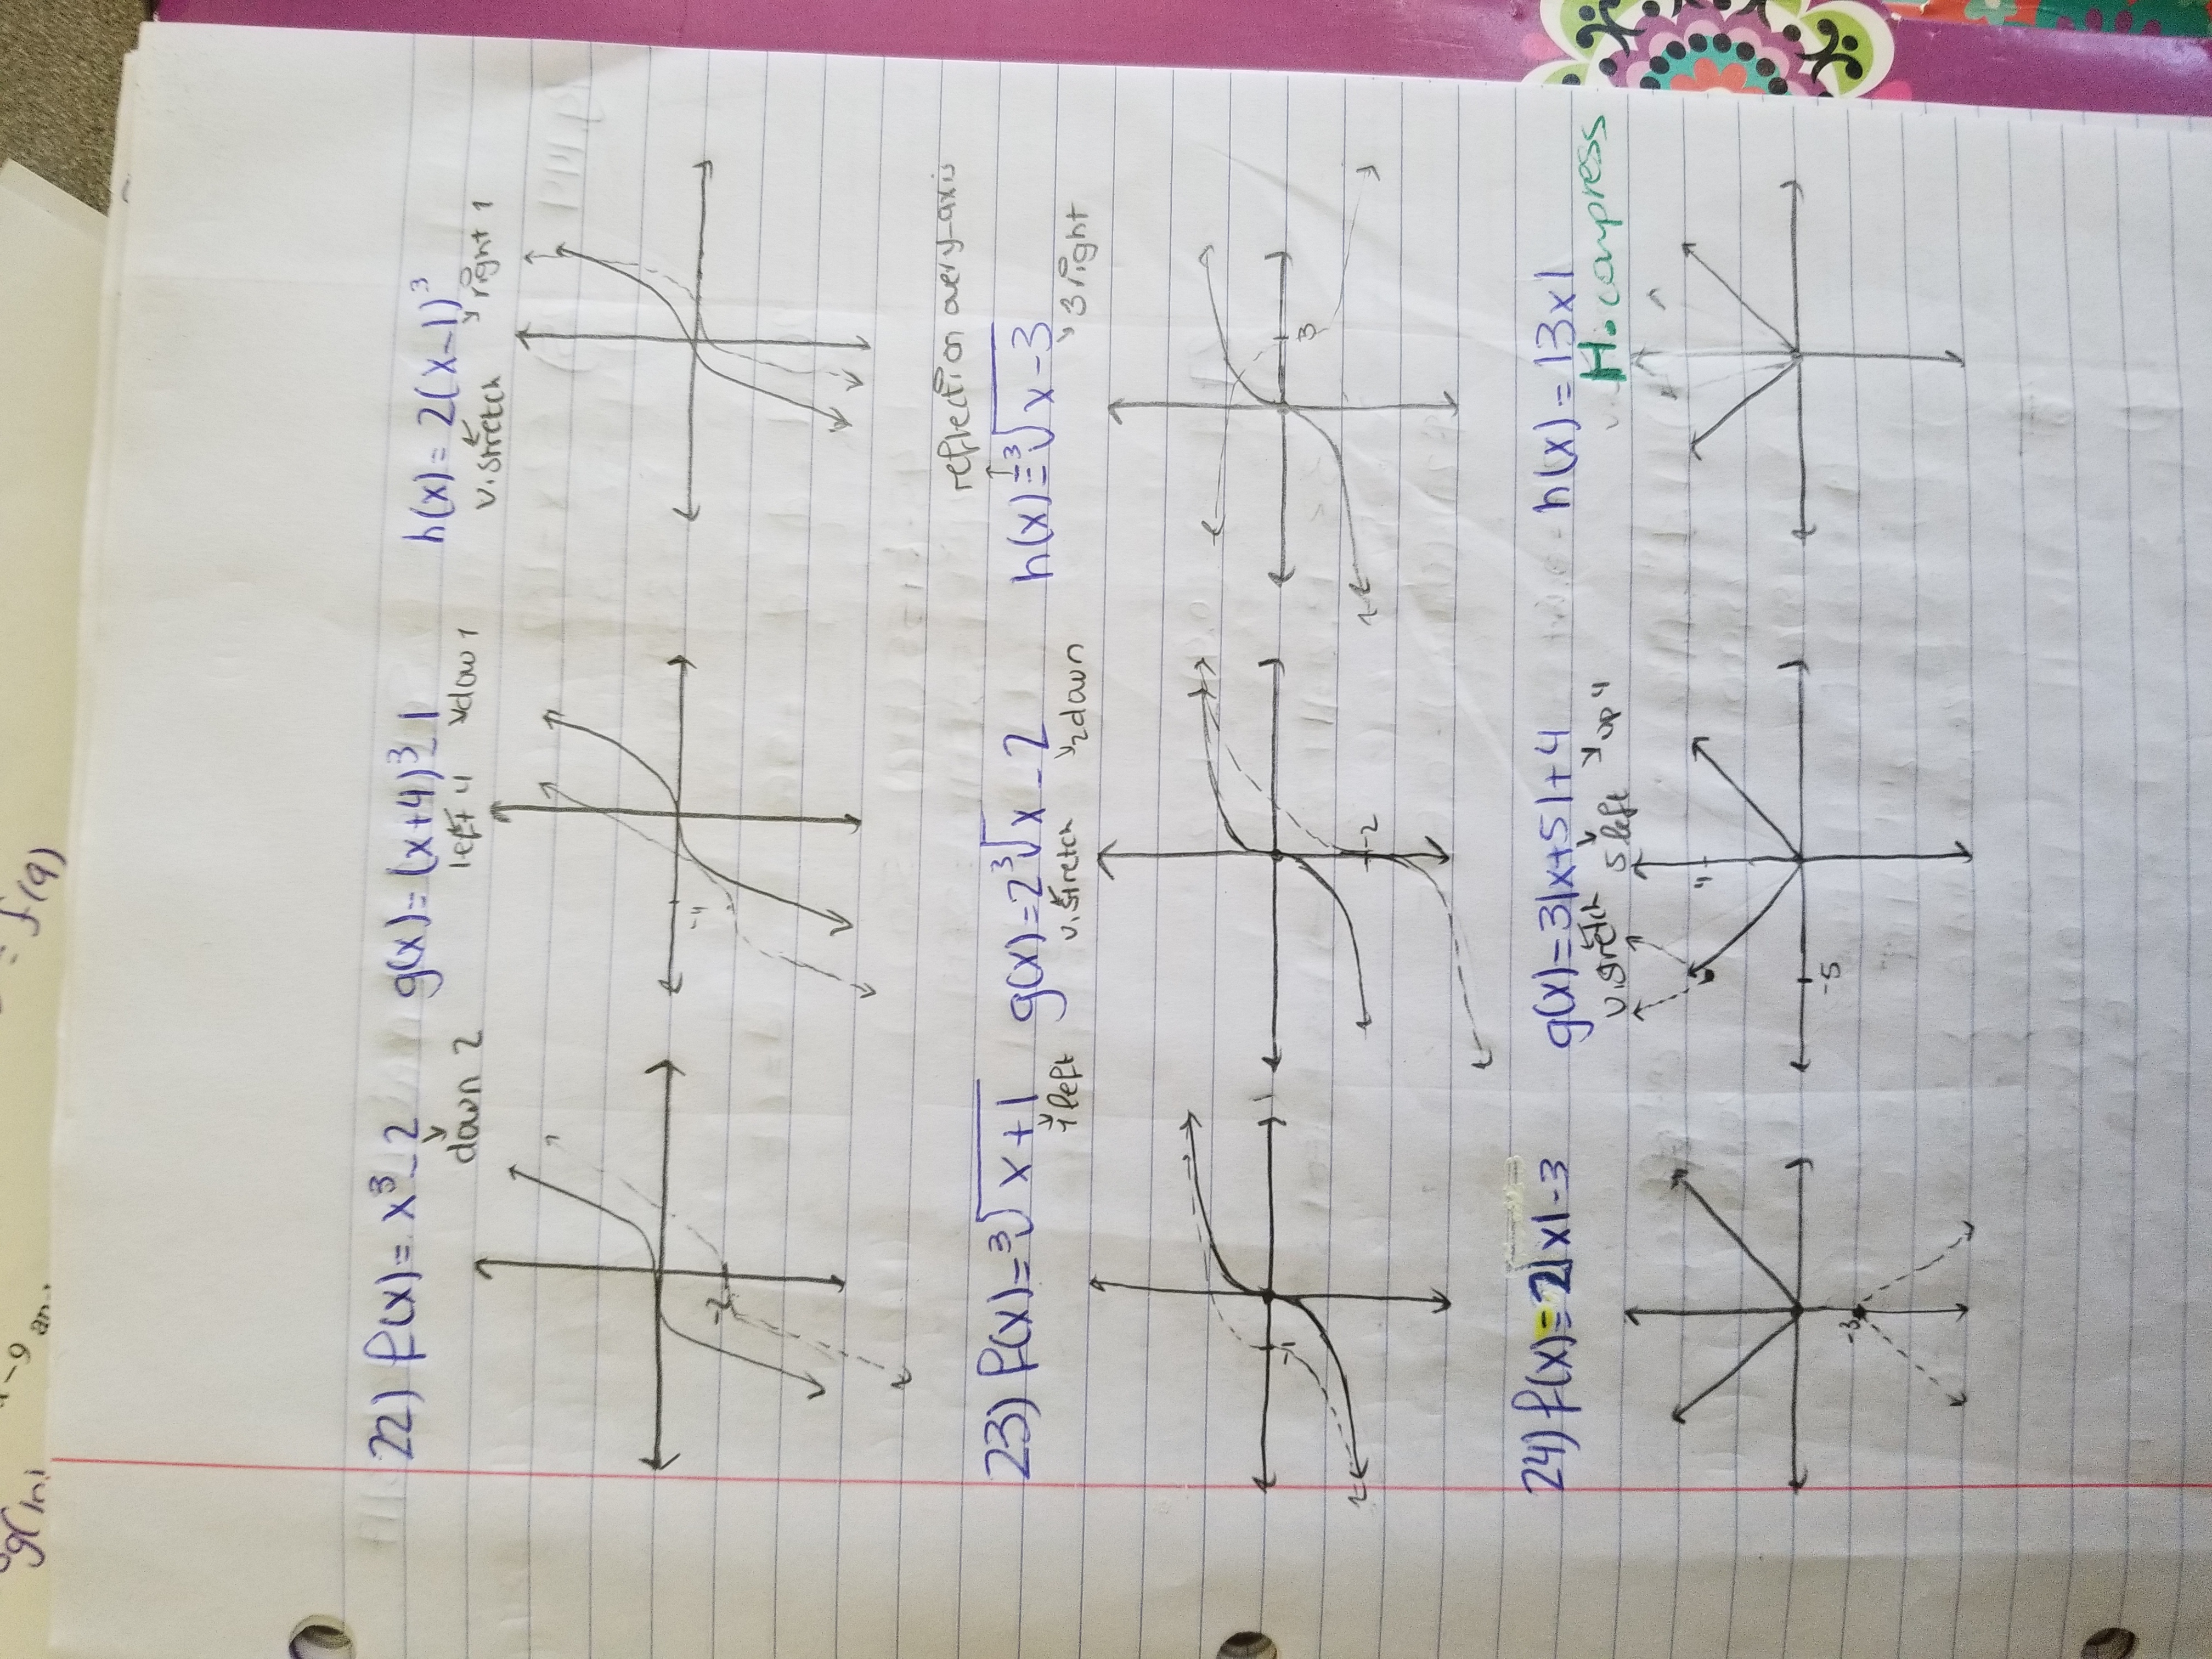 22) f(x) = x³ - 2 g(x) = (x+4)³ - 1 h(x) = 2(x-1)³
down 2 left 4 down 1 v. stretch right 1
-2 -4
reflection over y-axis
23) f(x) = ³√x+1 g(x) = 2³√x - 2 h(x) = -³√x-3
1 left v. stretch 2 down 3 right
-1 -2 3
24) f(x) = -2|x|-3 g(x) = 3|x+5|+4 h(x) = |3x|
v. stretch 5 left up 4 H. compress
-3 4 -5